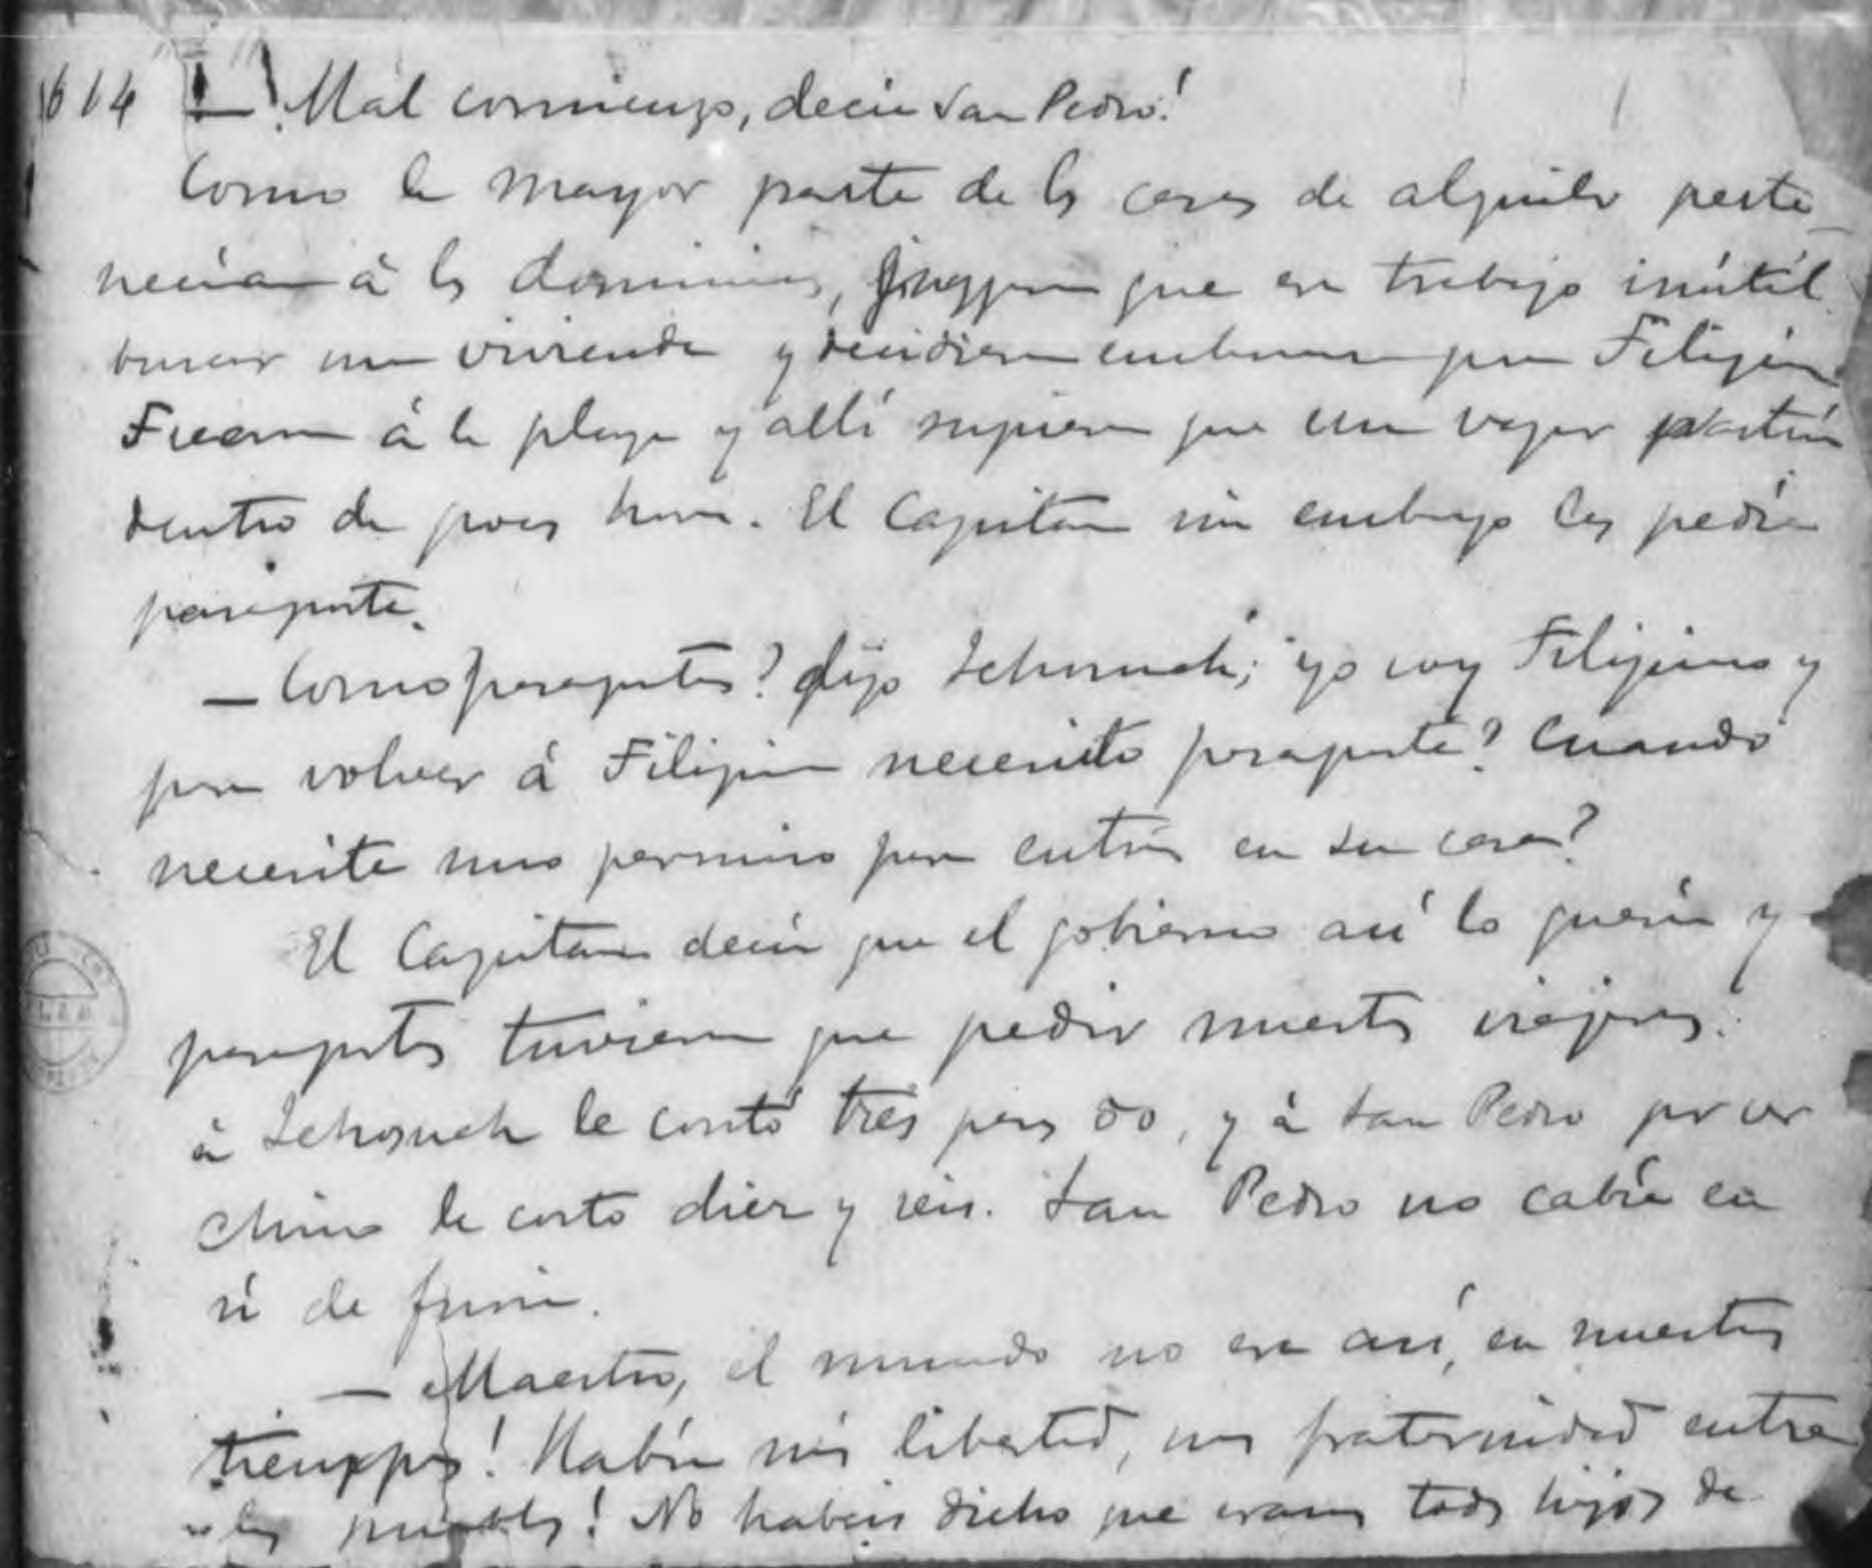 614 — ¡Mal comienzo, decía San Pedro!
Como la mayor parte de las casas de alquiler perte-
necían á los dominicos, juzgaron que era trabajo inútil
buscar una vivienda y decidieron embarcarse para Filipinas
Fueron á la playa y allí supieron que un vapor partía
dentro de pocas horas. El Capitan sin embargo les pedía
pasaporte.
— Como pasaportes? dijo Jehovah; yo soy Filipino y
para volver á Filipinas necesito pasaporte? Cuando
necesita uno permiso para entrar en su casa?
El Capitan decía que el gobierno así lo quería y
pasaportes tuvieron que pedir nuestros viajeros.
á Jehovah le costó tres pesos 00, y á San Pedro por ser
chino le costó diez y seis. San Pedro no cabía en
sí de furia.
— Maestro, el mundo no era así, en nuestros
tiempos! Había más libertad, mas fraternidad entre
los pueblos! No habeis dicho que eramos todos hijos de